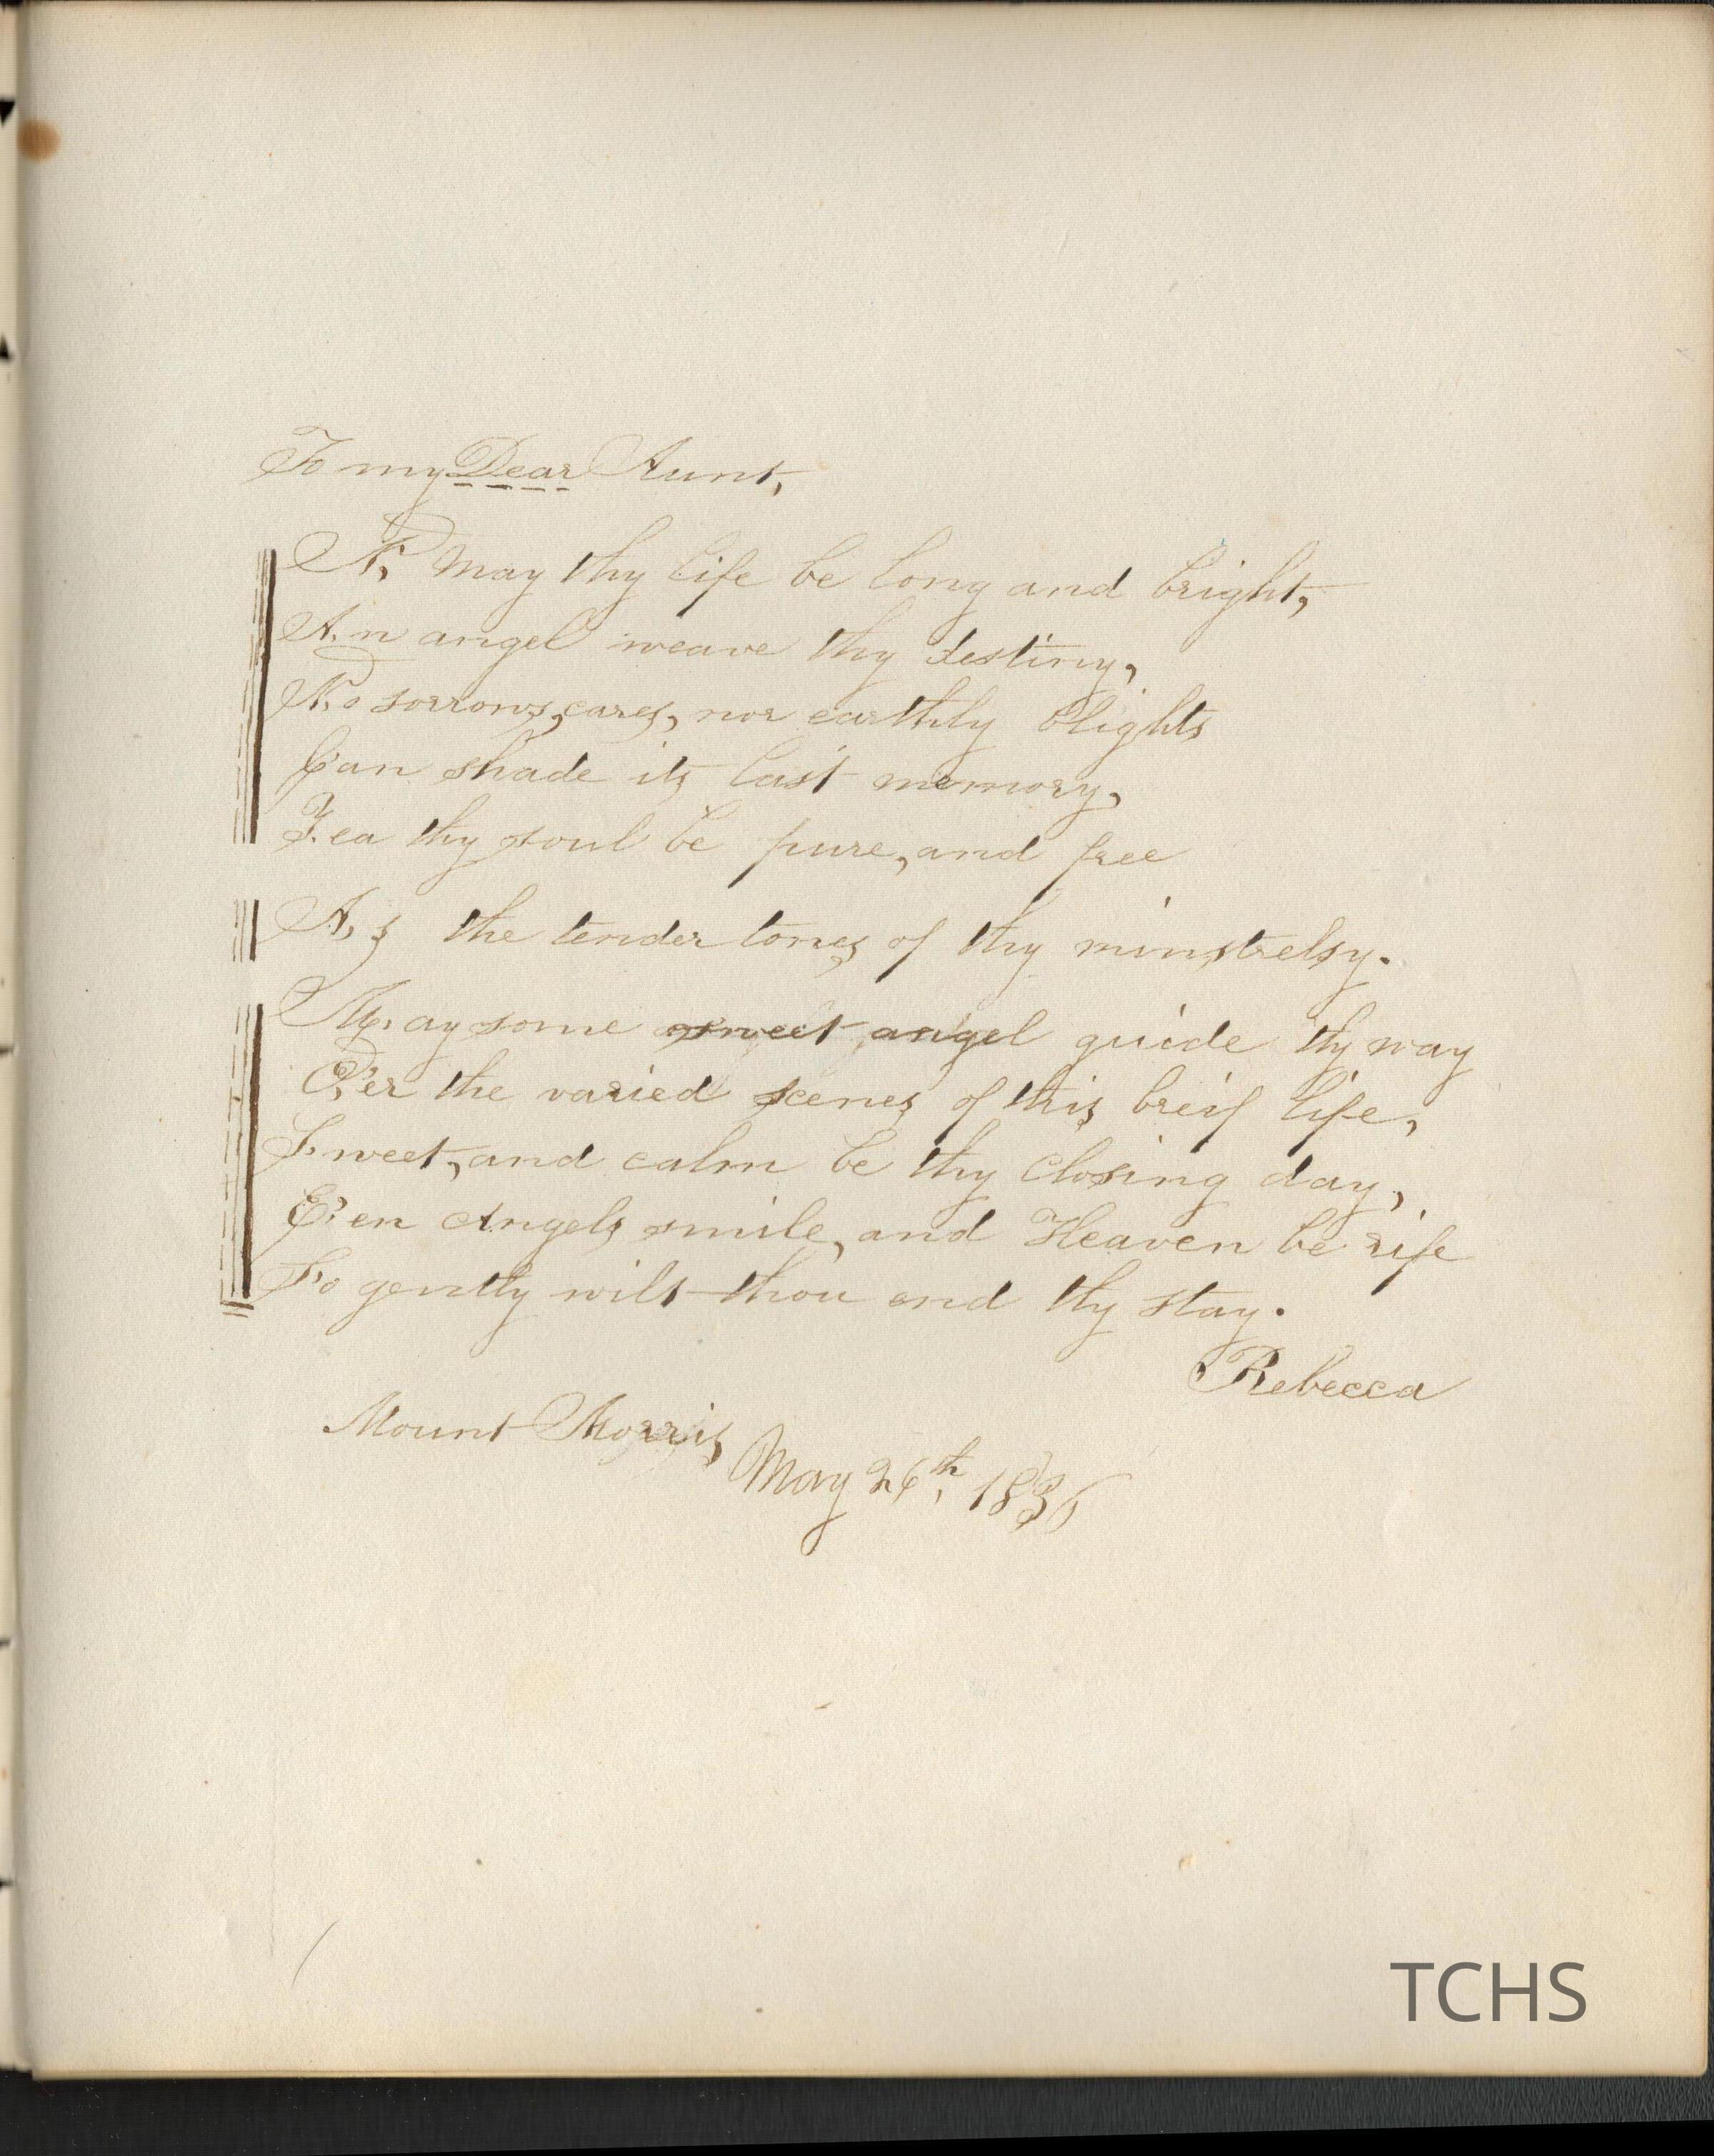 To my Dear Aunt,
N, May thy life be long and bright,
An angel weave thy destiny,
No sorrows, cares, nor earthly blights
Can shade its last memory,
Yea thy soul be pure, and free
As the tender tones of thy minstrelsy.
May some sweet angel guide thy way
O'er the varied scenes of this breif life,
Sweet, and calm be thy closing day,
E'en Angels smile, and Heaven be rife
So gently wilt thou end thy stay.
Rebecca
Mount Morris
May 26th, 1836
TCHS